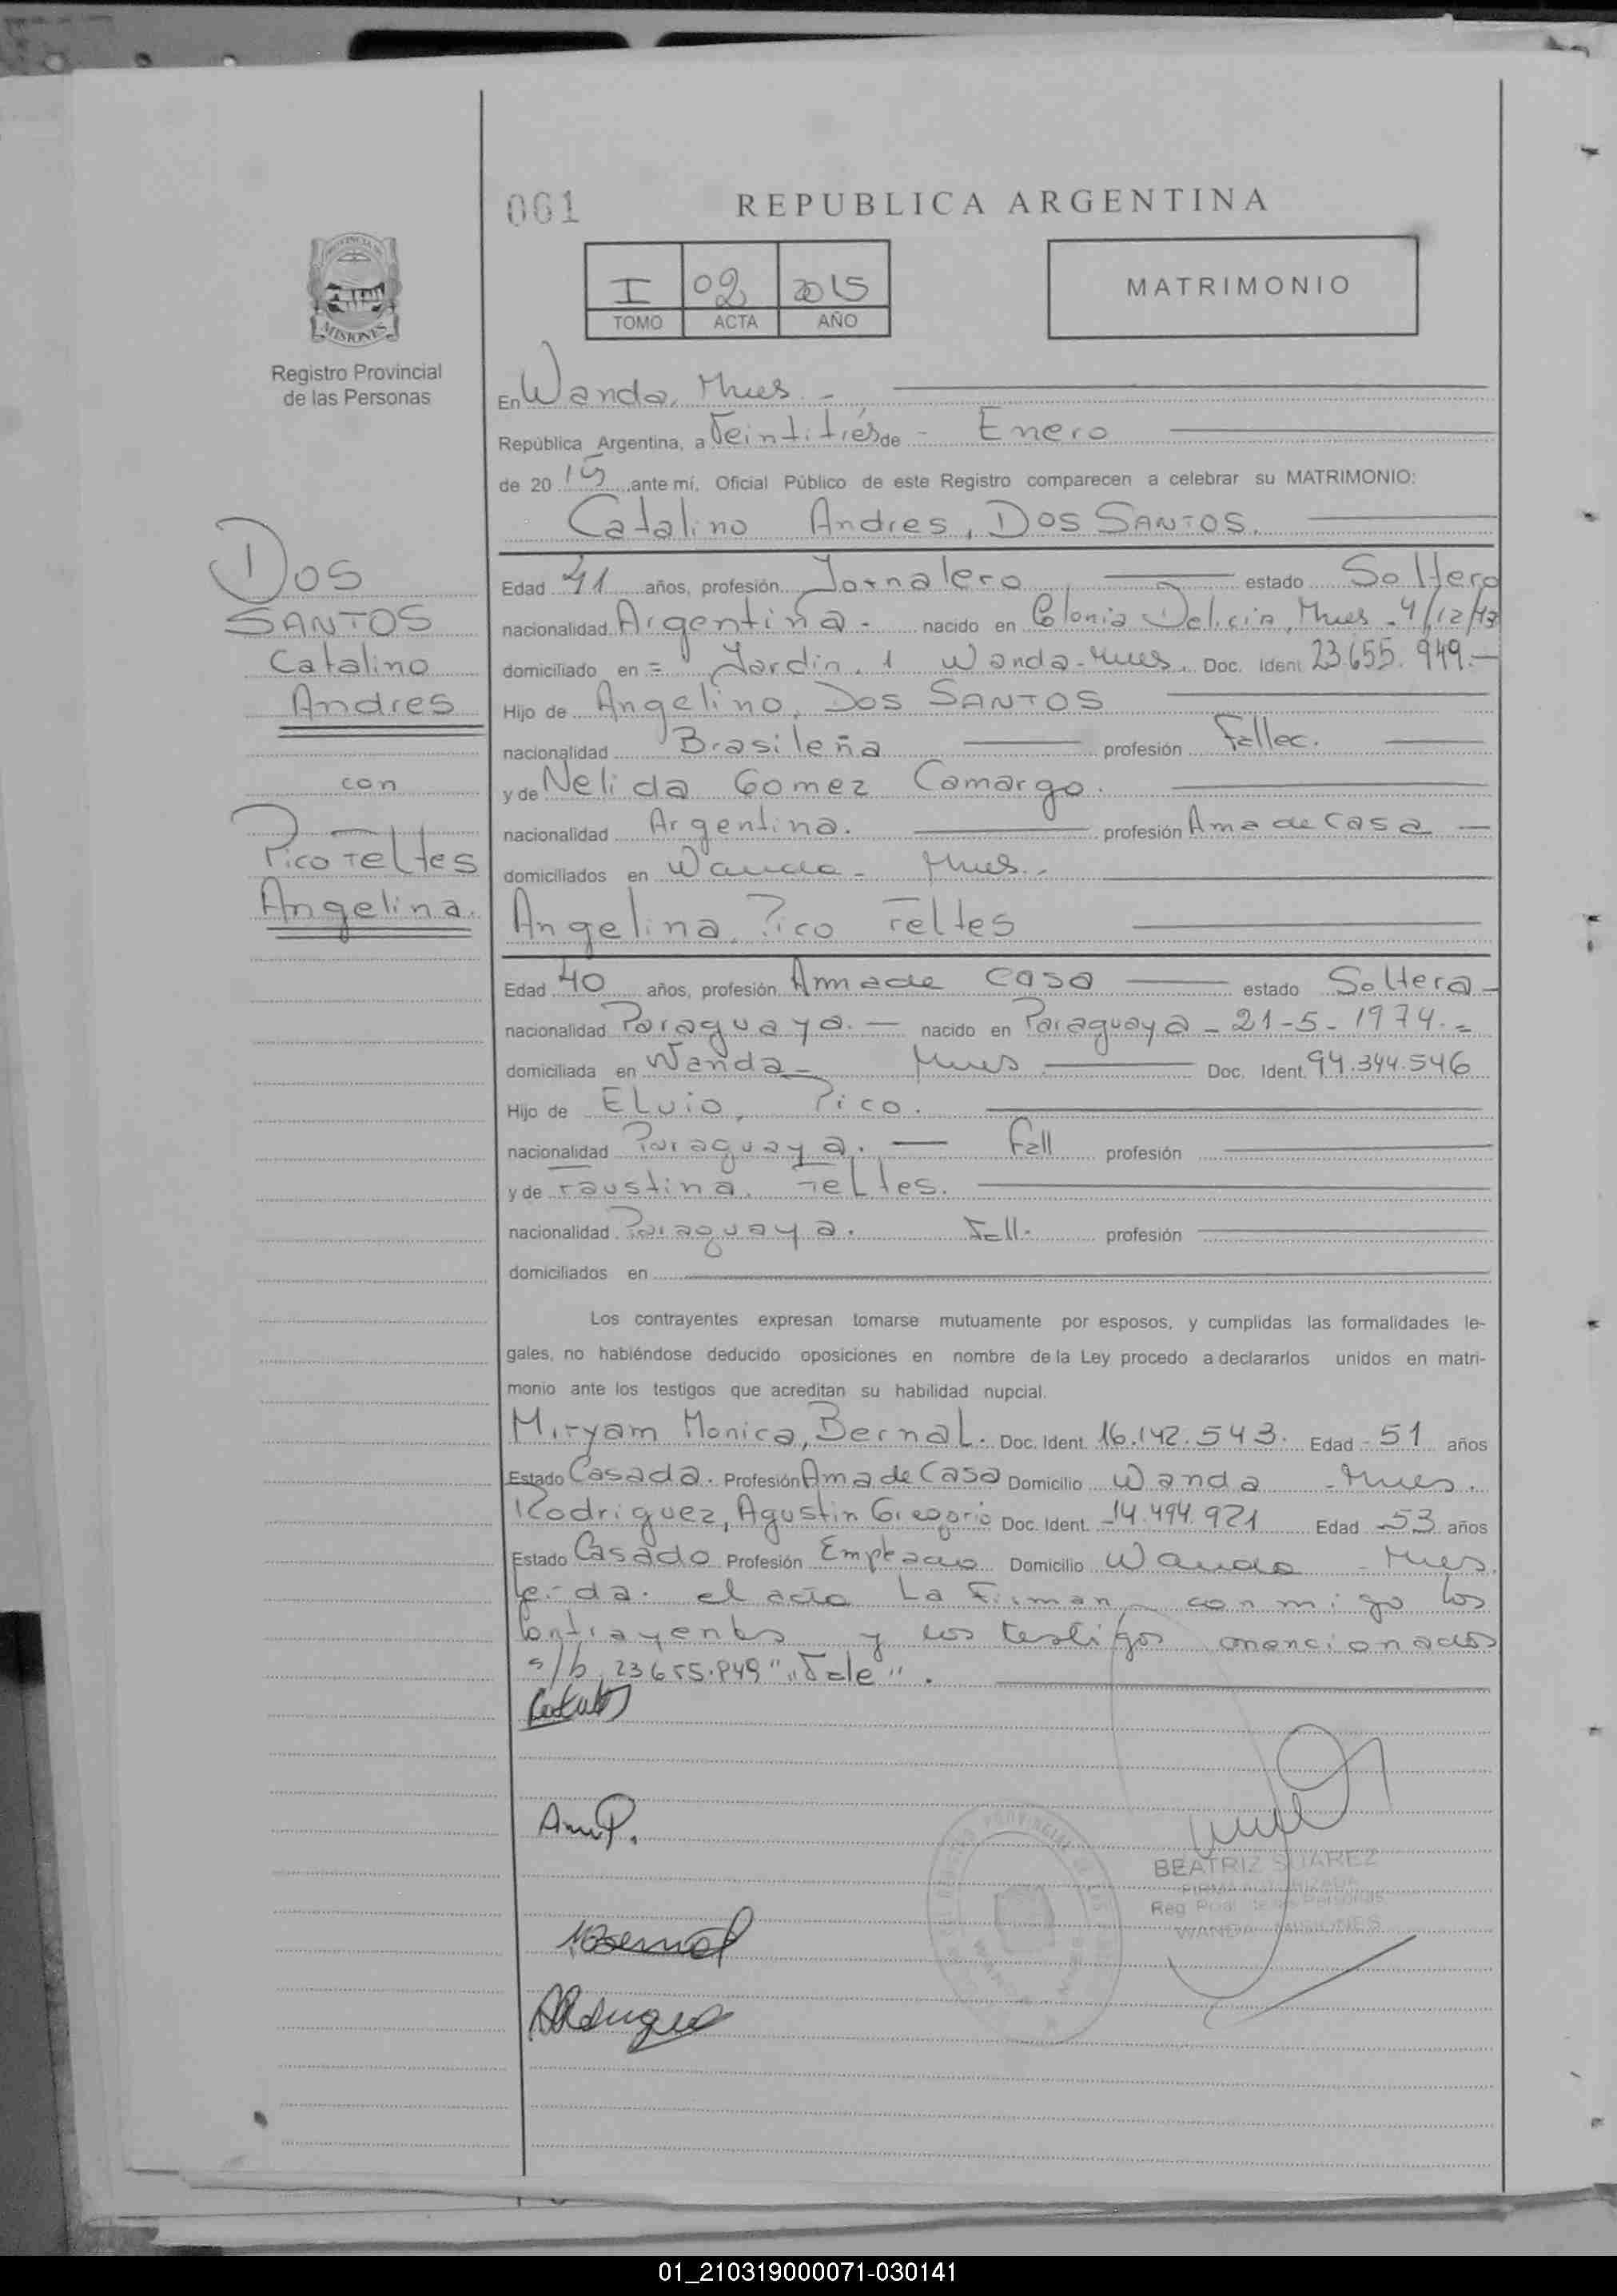 061
REPUBLICA ARGENTINA
I 02 2015
TOMO ACTA AÑO
MATRIMONIO
PROVINCIA DE
MISIONES
Registro Provincial
de las Personas
En Wanda, Mnes. -
República Argentina, a Veintitrés de - Enero
de 20 15, ante mí, Oficial Público de este Registro comparecen a celebrar su MATRIMONIO:
Catalino Andres, DOS SANTOS.
DOS
SANTOS
Catalino
Andres
con
Pico Feltes
Angelina.
Edad 41 años, profesión Jornalero estado Soltero
nacionalidad Argentina - nacido en Colonia Delicia, Mnes - 4/12/73
domiciliado en = Jardin, 1 Wanda-Mnes. Doc. Ident. 23.655.949.-
Hijo de Angelino, DOS SANTOS
nacionalidad Brasileña profesión Fallec.
y de Nelida Gomez Camargo.
nacionalidad Argentina. profesión Ama de casa
domiciliados en Wanda - Mnes.
Angelina, Pico Feltes
Edad 40 años, profesión Ama de casa estado Soltera
nacionalidad Paraguaya. nacido en Paraguaya - 21-5-1974. =
domiciliada en Wanda - Mnes Doc. Ident. 94.344.546
Hijo de Elvio, Pico.
nacionalidad Paraguaya. Fall profesión
y de Faustina Feltes.
nacionalidad Paraguaya. Fall. profesión
domiciliados en
Los contrayentes expresan tomarse mutuamente por esposos, y cumplidas las formalidades le-
gales, no habiéndose deducido oposiciones en nombre de la Ley procedo a declararlos unidos en matri-
monio ante los testigos que acreditan su habilidad nupcial.
Miryam Monica, Bernal. Doc. Ident. 16.142.543. Edad 51 años
Estado Casada. Profesión Ama de Casa Domicilio Wanda - Mnes.
Rodriguez, Agustin Gregorio Doc. Ident. 14.494.921 Edad 53 años
Estado Casado Profesión Empleado Domicilio Wanda - Mnes.
Leida el acta La Firman, conmigo los
Contrayentes y los testigos mencionados
s/b 23655.949 "Vale".
BEATRIZ SUAREZ
FIRMA AUTORIZADA
Reg. Prov. de las Personas
WANDA - MISIONES
01_210319000071-030141